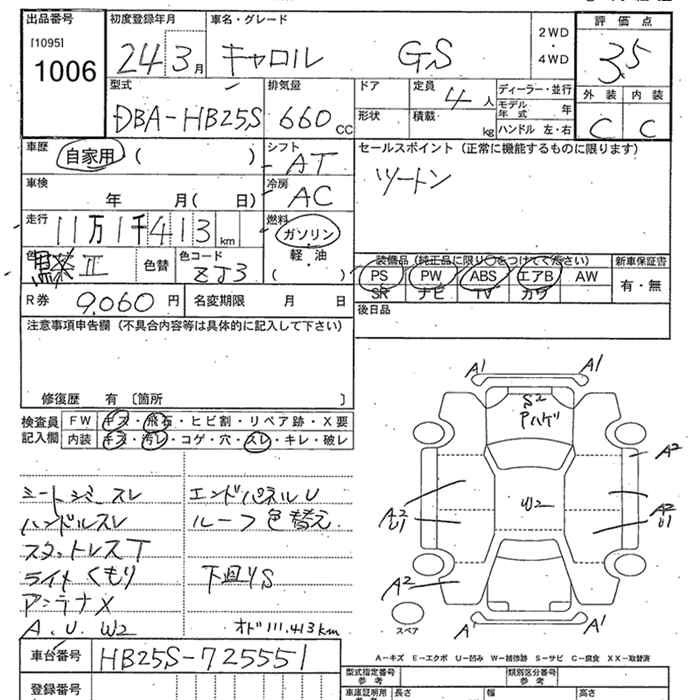 出品番号 初度登録年月 車名・グレード 2WD・4WD 評価点
[1095]
1006 24 3月 キャロル GS 3.5
型式 排気量 ドア 定員 4人 ディーラー・並行 外装 内装
DBA-HB25S 660 CC 形状 積載 kg モデル年式 年 C C
ハンドル 左・右
車歴 自家用 ( ) シフト AT セールスポイント (正常に機能するものに限ります)
車検 年 月( 日) 冷房 AC ツートン
走行 11万1千413 km 燃料 ガソリン
軽・油
( )
色 II 色替 色コード ZJ3 装備品 (純正品に限り○をつけてください) 新車保証書
PS PW ABS エアB AW 有・無
SR ナビ TV カワ
R券 9,060円 名変期限 月 日 後日品
注意事項申告欄 (不具合内容等は具体的に記入して下さい)
修復歴 有 〔箇所 〕
検査員記入欄 FW キズ・飛石・ヒビ割・リペア跡・X要
内装 キズ・汚レ・コゲ・穴・スレ・キレ・破レ
エンドパネルU
ハンドルスレ ルーフ色替え
スタットレスT
ライトくもり 下廻りS
アンテナX
A.U.W2 オド111,413km
A1 A1
S2
Pハゲ
A2
A2 U1 W2 A2 U1
A2
A1 A1
スペア
A-キズ E-エクボ U-凹み W-補修跡 S-サビ C-腐食 XX-取替済
車台番号 HB25S-725551
登録番号 型式指定番号 参考 類別区分番号 参考
車庫証明用 長さ 幅 高さ